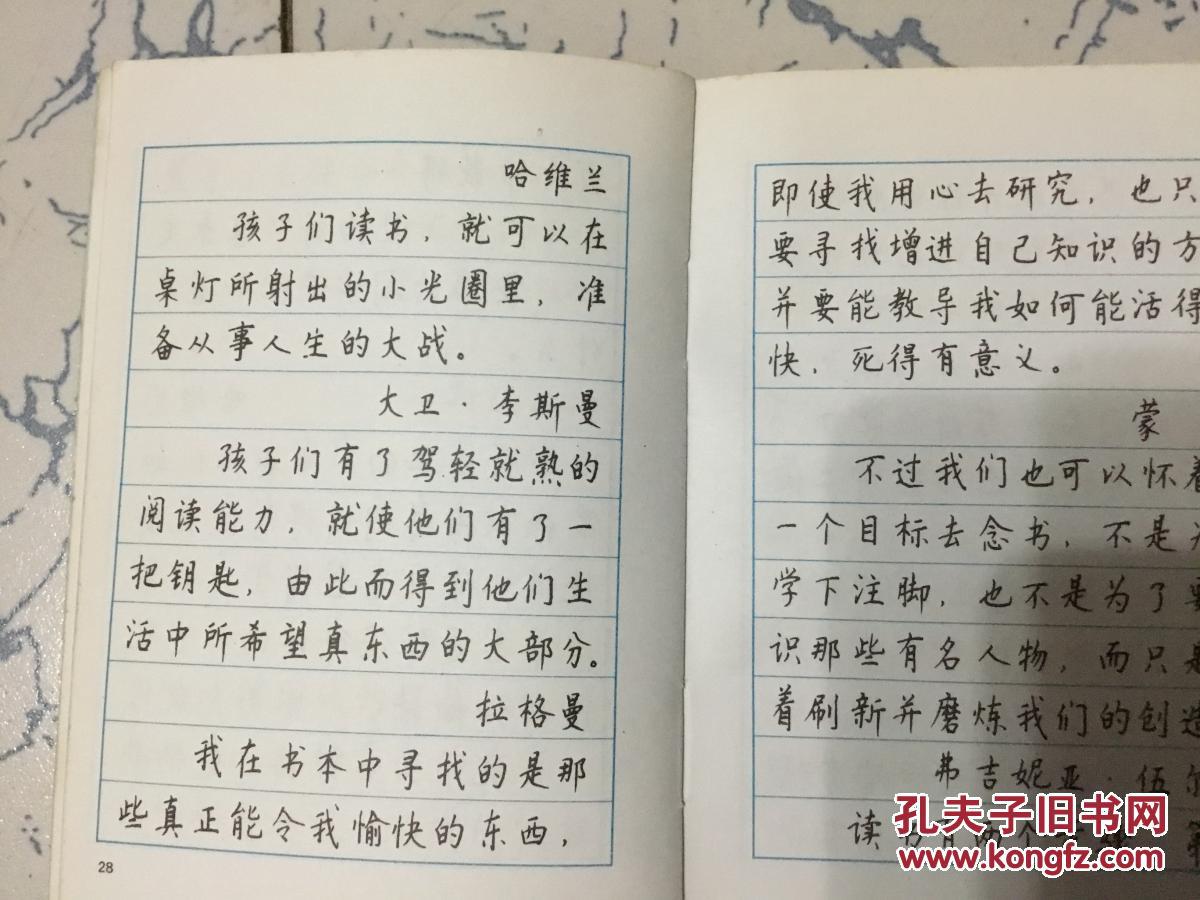 哈维兰
孩子们读书，就可以在
桌灯所射出的小光圈里，准
备从事人生的大战。
大卫·李斯曼
孩子们有了驾轻就熟的
阅读能力，就使他们有了一
把钥匙，由此而得到他们生
活中所希望真东西的大部分。
拉格曼
我在书本中寻找的是那
些真正能令我愉快的东西，
28
即使我用心去研究，也只
要寻找增进自己知识的方
并要能教导我如何能活得
快，死得有意义。
蒙
不过我们也可以怀着
一个目标去念书，不是
学下注脚，也不是为了
识那些有名人物，而只是
着刷新并磨炼我们的创造
弗吉妮亚·伍尔
读书有两个
孔夫子旧书网
www.kongfz.com